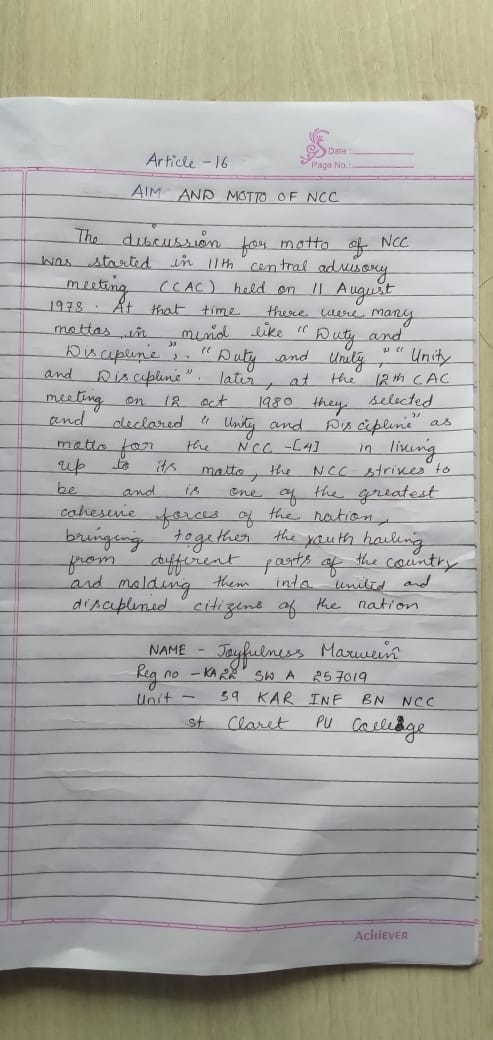 Date :
Page No.:
Article - 16
AIM AND MOTTO OF NCC
The discussion for motto of NCC
was started in 11th central advisory
meeting (CAC) held on 11 August
1978. At that time there were many
mottos in mind like "Duty and
Discipline"; "Duty and Unity," "Unity
and Discipline". later, at the 12th CAC
meeting on 12 oct 1980 they selected
and declared "Unity and Discipline" as
motto for the NCC -[4] in living
up to its motto, the NCC strives to
be and is one of the greatest
cohesive forces of the nation,
bringing together the youth hailing
from different parts of the country
and molding them into united and
disciplined citizens of the nation
NAME - Joyfulness Marwein
Reg no - KA22 SW A 257019
Unit - 39 KAR INF BN NCC
st Claret PU College
AchiEVER